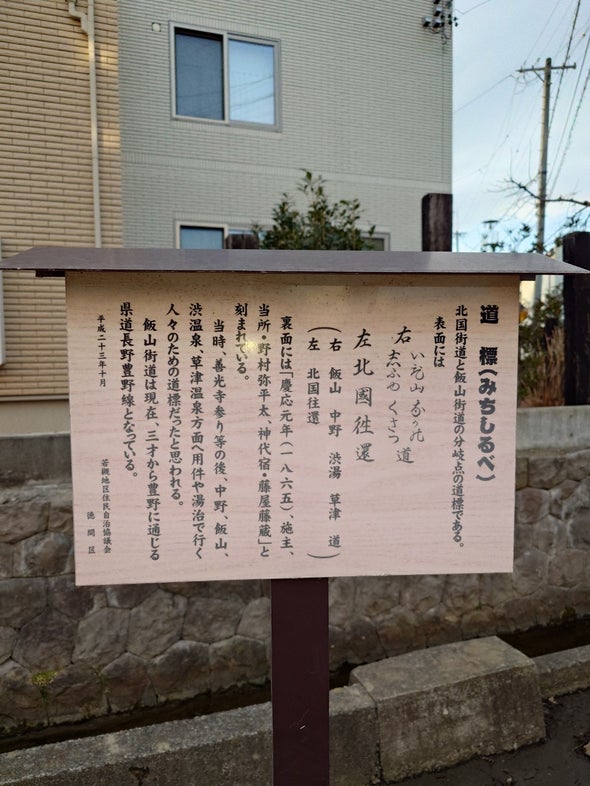 道標(みちしるべ)
北国街道と飯山街道の分岐点の道標である。
表面には
右 いゐ山 なかの
志ぶゆ くさつ 道
左 北國徃還
(右 飯山 中野 渋湯 草津 道)
(左 北国往還)
裏面には「慶応元年(一八六五)、施主、
当所・野村弥平太、神代宿・藤屋藤蔵」と
刻まれている。
当時、善光寺参り等の後、中野、飯山、
渋温泉、草津温泉方面へ用件や湯治で行く
人々のための道標だったと思われる。
飯山街道は現在、三才から豊野に通じる
県道長野豊野線となっている。
平成二十三年十月
若槻地区住民自治協議会
徳間区